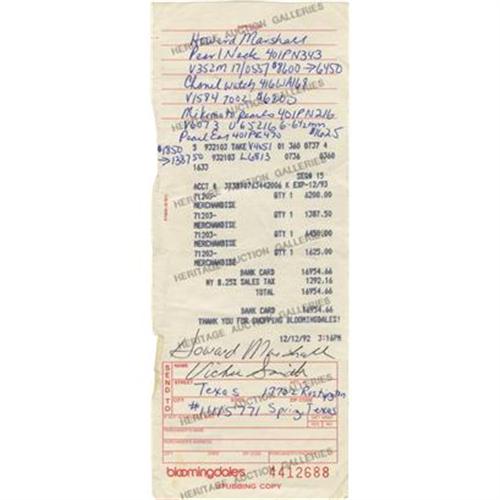 HERITAGE AUCTION GALLERIES
Howard Marshall
Pearl Neck 401PN343
V352M 17/0557 $8600→6450
Chanel watch 416WA168
V1594 7002 $6200
Mikimoto pearls 401PN216
V6073 V65216 6-6½mm
Pearl Ear 401PE470 $1625
$1850
→1387 50
S 932103 TAKE V4651 01 360 0737 4
932103 L6813 0736 0360
1633
SEQ# 15
ACCT # 3738910763442006 K EXP-12/93
71203- QTY 1 6200.00
MERCHANDISE
71203- QTY 1 1387.50
MERCHANDISE
71203- QTY 1 6450.00
MERCHANDISE
71203- QTY 1 1625.00
MERCHANDISE
BANK CARD 16954.66
NY 8.25% SALES TAX 1292.16
TOTAL 16954.66
BANK CARD 16954.66
THANK YOU FOR SHOPPING BLOOMINGDALES!
12/12/92 3:16PM
Howard Marshall
SEND TO
NAME
Vickie Smith
STREET
Texas
CITY STATE ZIP CODE
Spring Texas
PURCHASER'S NAME
PURCHASER'S ADDRESS
CITY STATE ZIP CODE
bloomingdales 4412688
STUBBING COPY